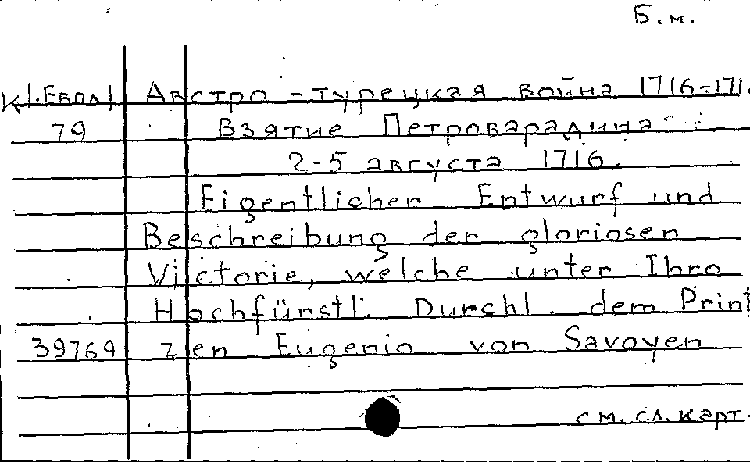 Б.м.
К1.Евол1 Австро-турецкая война 1716-171
79 Взятие Петроварадина
2-5 августа 1716.
Eigentlicher Entwurf und
Beschreibung der gloriosen
Victorie, welche unter Ihro
Hochfürstl. Durchl. dem Print
39769 zen Eugenio von Savoyen
см. сл. карт.